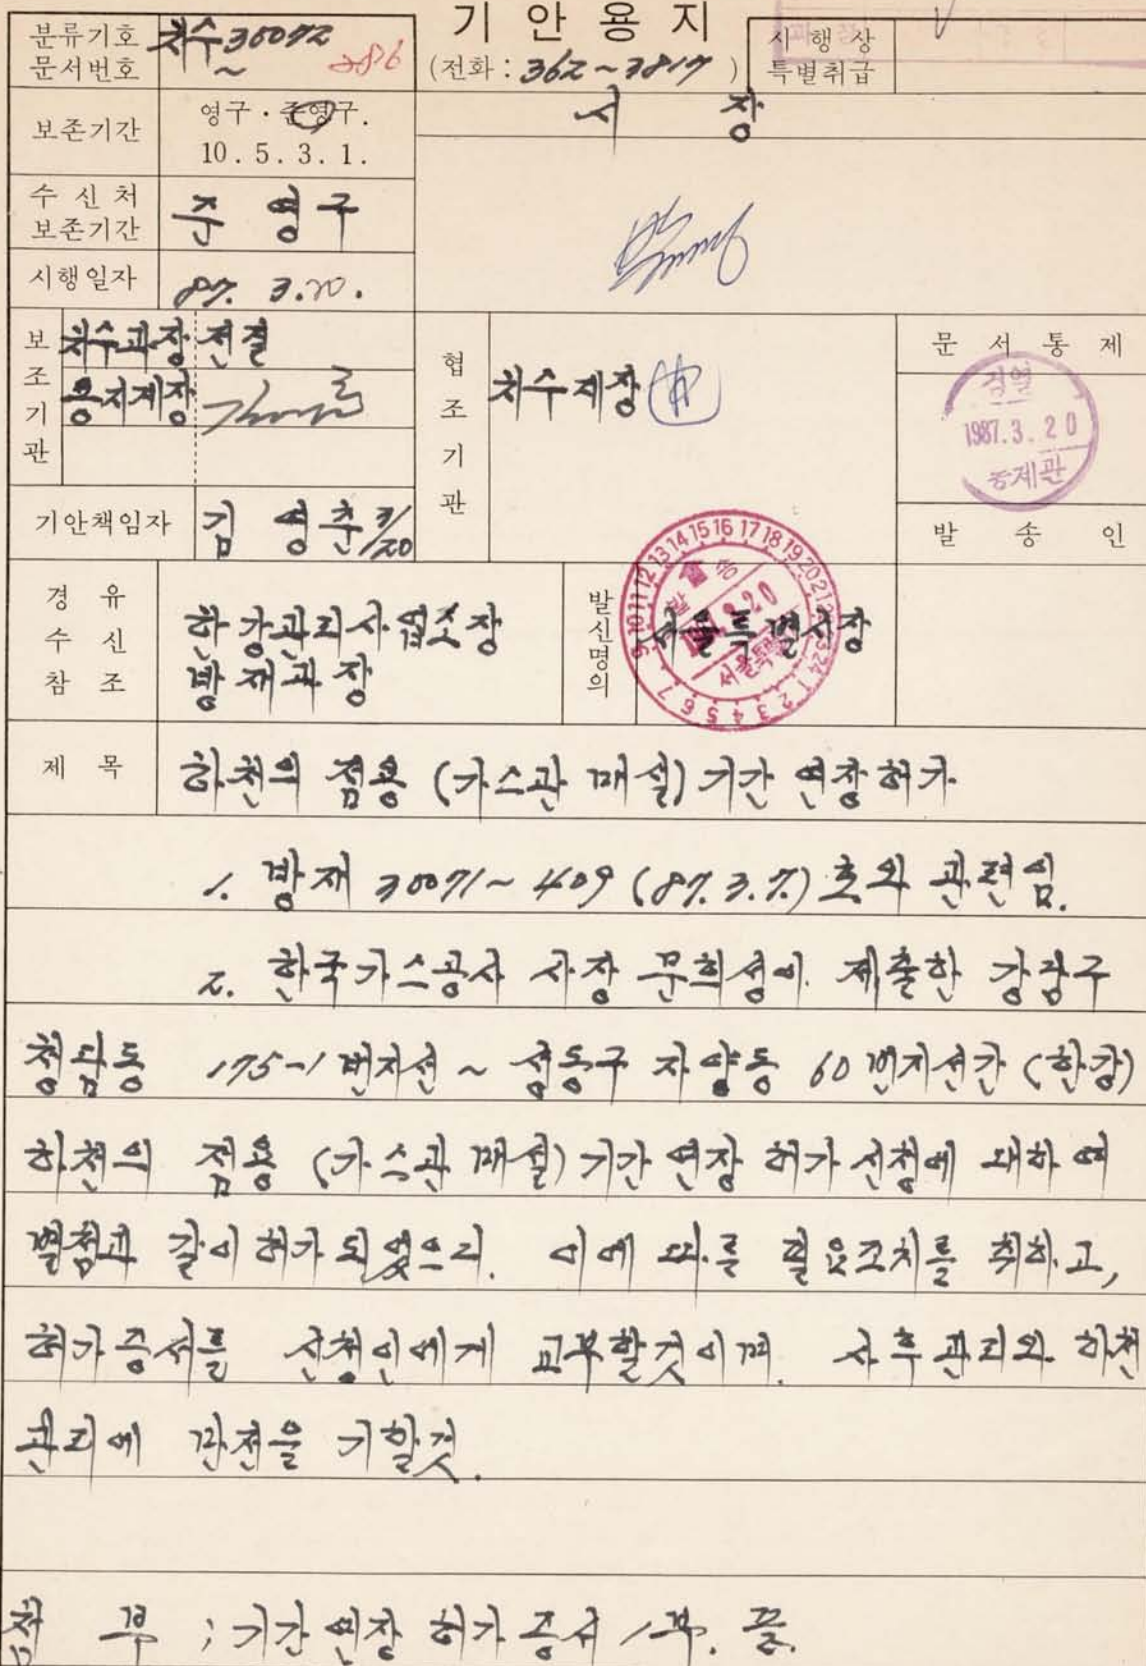 기안용지
분류기호 문서번호 치수30072~ 286
(전화 : 362~3817)
시행상 특별취급
보존기간 영구·준영구. 10. 5. 3. 1.
시 장
수신처 보존기간 준 영구
시행일자 87. 3. 20.
보조기관 치수과장 전결
용지계장
협조기관 치수계장
문서통제
검열 1987. 3. 20 통제관
기안책임자 김영춘 3/20
발송인
경유 수신 참조 한강관리사업소장
방재과장
발신명의 서울특별시장
9 10 11 12 13 14 15 16 17 18 19 20 21 22 23 24 1 2 3 4 5 6 7
제목 하천의 점용 (가스관 매설) 기간 연장허가
1. 방재 30071~409 (87. 3. 7.) 호와 관련임.
2. 한국가스공사 사장 문희성이 제출한 강남구
청담동 175-1 번지선 ~ 성동구 자양동 60 번지선간 (한강)
하천의 점용 (가스관 매설) 기간 연장 허가 신청에 대하여
별첨과 같이 허가 되었으니 이에 따른 필요조치를 취하고,
허가증서를 신청인에게 교부할것이며 사후관리와 하천
관리에 만전을 기할것.
첨 부 ; 기간 연장 허가 증서 1부. 끝.